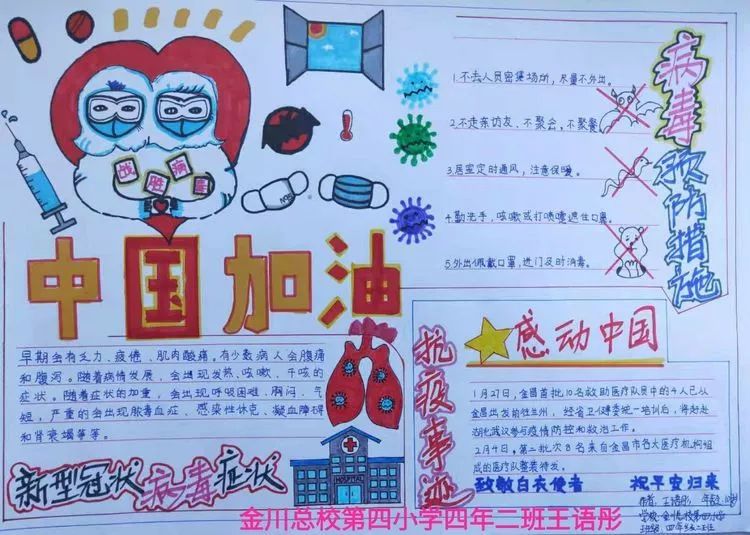 战胜病毒
M95
中国加油
病毒预防措施
1.不去人员密集场所，尽量不外出。
2.不走亲访友、不聚会，不聚餐
3.居室定时通风，注意保暖。
4.勤洗手，咳嗽或打喷嚏遮住口鼻。
5.外出佩戴口罩，进门及时消毒。
早期会有乏力、疲倦、肌肉酸痛。有少数病人会腹痛
和腹泻。随着病情发展，会出现发热、咳嗽、干咳的
症状。随着症状的加重，会出现呼吸困难、胸闷、气
短，严重的会出现脓毒血症、感染性休克、凝血障碍
和肾衰竭等等。
新型冠状病毒症状
HOSPITAL
抗疫事迹
感动中国
1月27日，金昌首批10名救助医疗队员中的4人已从
金昌出发前往兰州，经省卫健委统一培训后，将奔赴
湖北武汉参与疫情防控和救治工作。
2月4日，第二批次8名来自金昌市各大医疗机构组
成的医疗队整装待发。
致敬白衣使者 祝平安归来
作者：王语彤 年龄：10岁
学校：金川总校第四小学
班级：四年级二班
金川总校第四小学四年二班王语彤